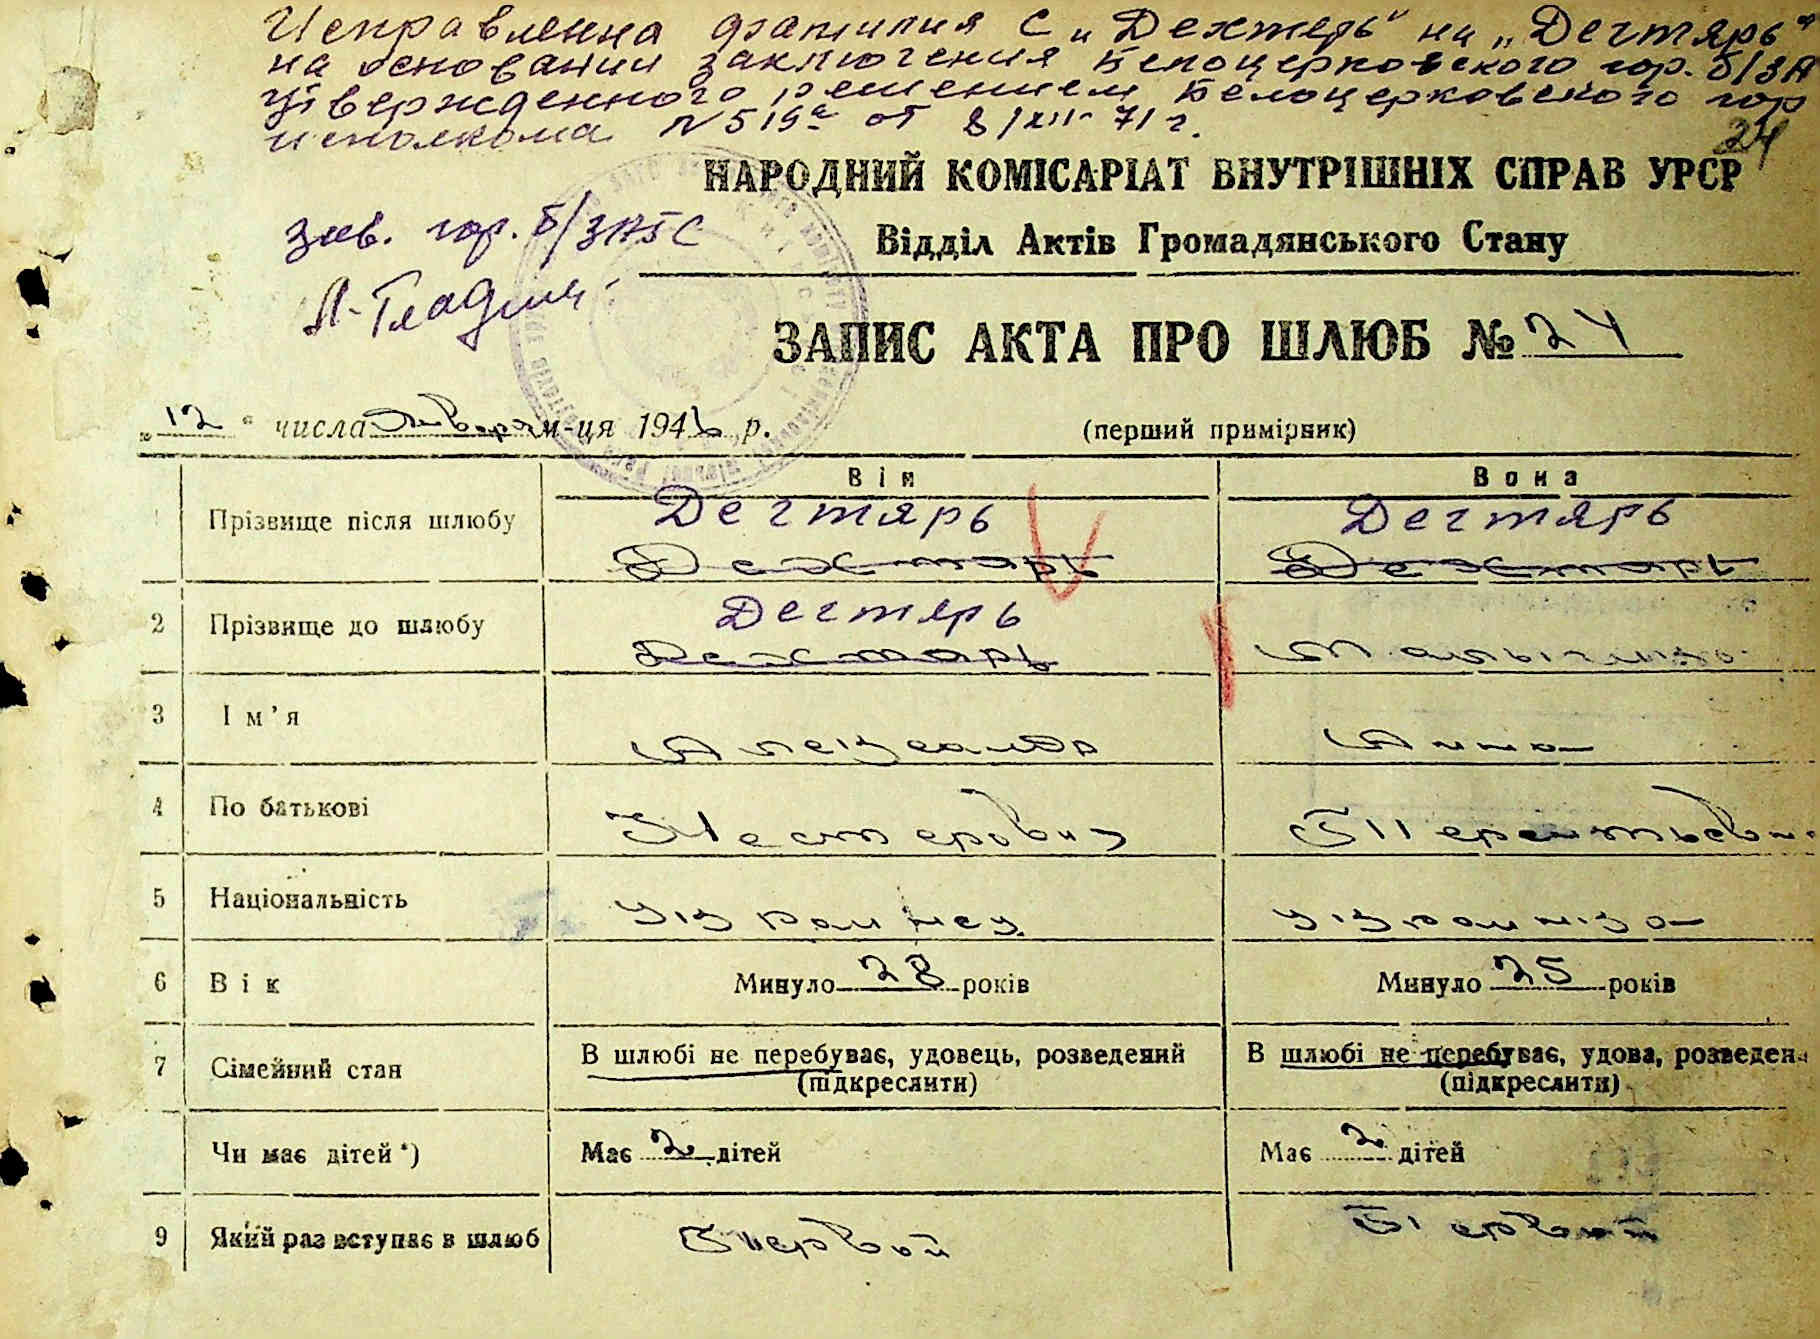 Исправленна фамилия с „Дехтярь" на „Дегтярь"
на основании заключения Белоцерковского гор. б/ЗА
утвержденного решением Белоцерковского гор
исполкома N 519а от 8/XII-71 г.
24
НАРОДНИЙ КОМІСАРІАТ ВНУТРІШНІХ СПРАВ УРСР
зав. гор. б/ЗАГС
Відділ Актів Громадянського Стану
ЗАПИС АКТА ПРО ШЛЮБ № 24
„12" числа января м-ця 194 р.
(перший примірник)
Він Вона
1 Прізвище після шлюбу Дегтярь Дегтярь
Дехтарь Дехтарь
2 Прізвище до шлюбу Дегтярь
Дехтарь
3 Ім'я Александр Анна
4 По батькові Нестерович Терентьевна
5 Національність Украинец Украинка
6 Вік Минуло 28 років Минуло 25 років
7 Сімейний стан В шлюбі не перебуває, удовець, розведений В шлюбі не перебуває, удова, розведена
(підкреслити) (підкреслити)
Чи має дітей *) Має 2 дітей Має 2 дітей
9 Який раз вступає в шлюб Первый Первый